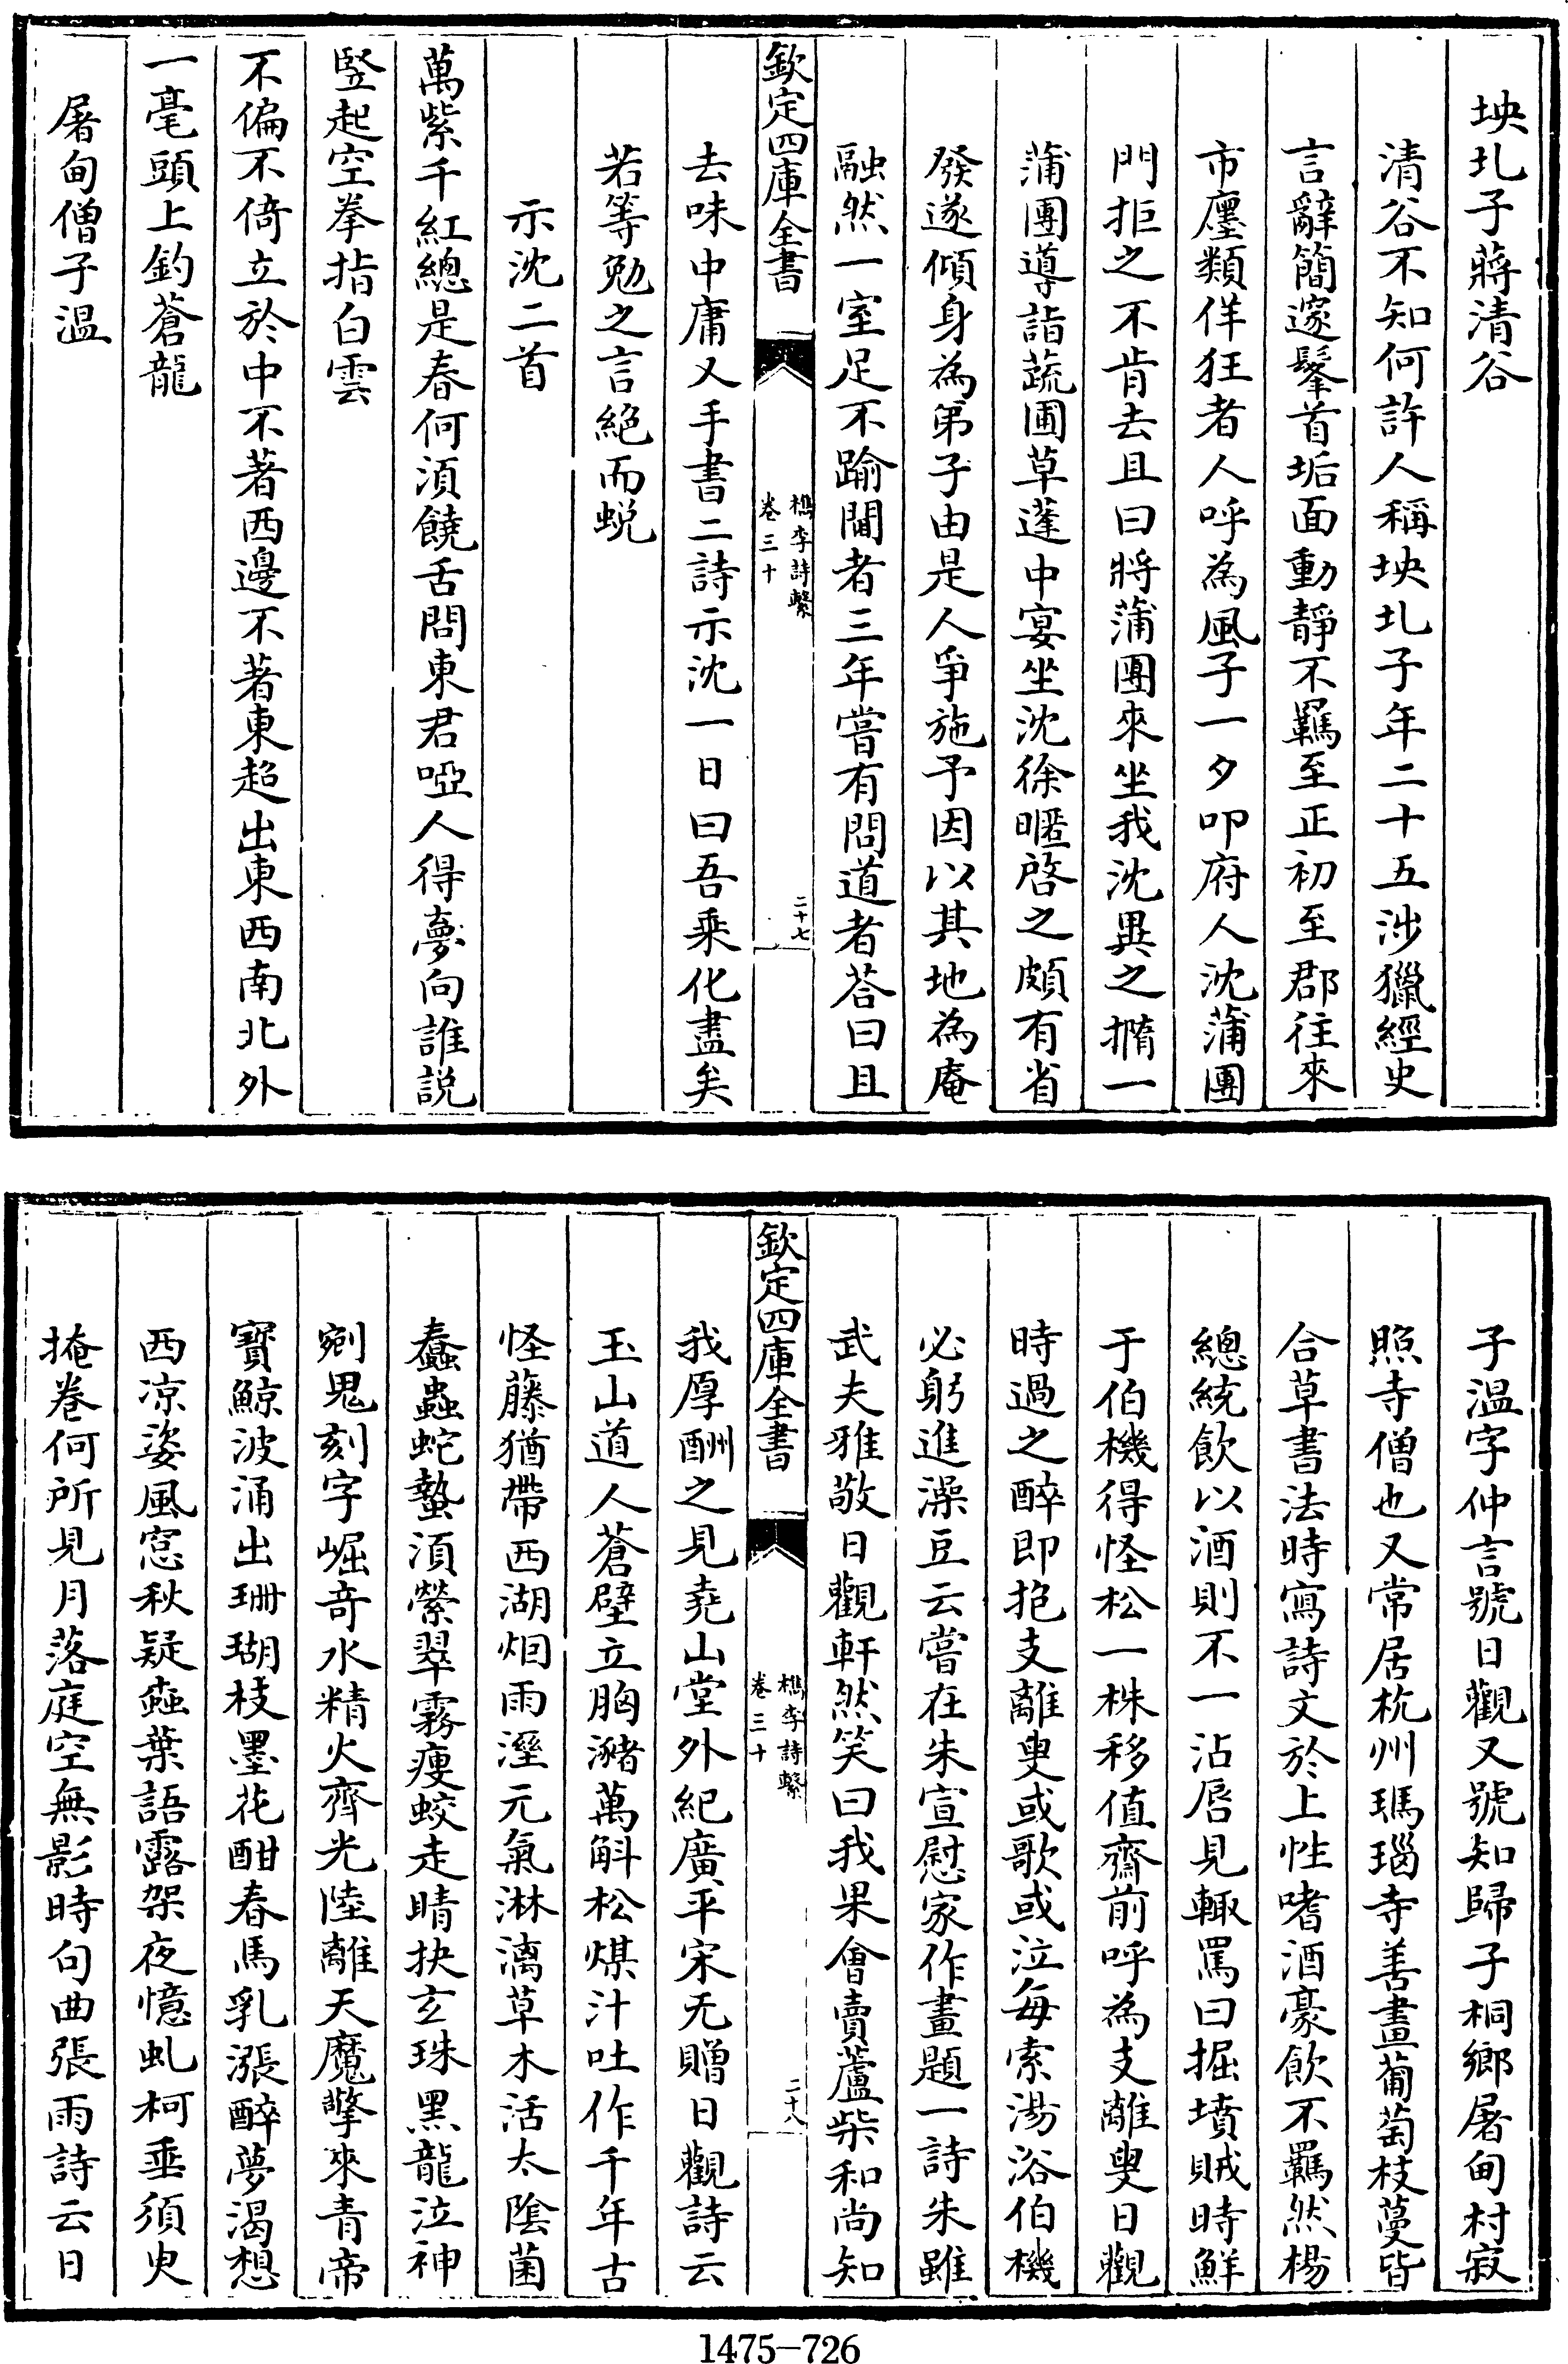 坱圠子蔣清谷
清谷不知何許人稱坱圠子年二十五涉獵經史
言辭簡邃髼首垢面動靜不羈至正初至郡往來
市廛類佯狂者人呼為風子一夕叩府人沈蒲團
門拒之不肯去且曰將蒲團來坐我沈異之攜一
蒲團導詣蔬圃草蓬中宴坐沈徐暱啓之頗有省
發遂傾身為弟子由是人爭施予因以其地為庵
融然一室足不踰閫者三年嘗有問道者荅曰且
欽定四庫全書
檇李詩繫
卷三十
二十七
去味中庸又手書二詩示沈一日曰吾乘化盡矣
若等勉之言絕而蛻
示沈二首
萬紫千紅總是春何湏饒舌問東君啞人得夢向誰説
竪起空拳指白雲
不偏不倚立於中不著西邊不著東超出東西南北外
一毫頭上釣蒼龍
屠甸僧子溫
子溫字仲言號日觀又號知歸子桐鄉屠甸村寂
照寺僧也又常居杭州瑪瑙寺善畫葡萄枝蔓皆
合草書法時寫詩文於上性嗜酒豪飲不羈然楊
總統飲以酒則不一沾唇見輙罵曰掘墳賊時鮮
于伯機得怪松一株移值齋前呼為支離叟日觀
時過之醉即抱支離叟或歌或泣每索湯浴伯機
必躬進澡豆云嘗在朱宣慰家作畫題一詩朱雖
武夫雅敬日觀軒然笑曰我果會賣蘆柴和尚知
欽定四庫全書
檇李詩繫
卷三十
二十八
我厚酬之見堯山堂外紀廣平宋无贈日觀詩云
玉山道人蒼壁立胸瀦萬斛松煤汁吐作千年古
怪藤猶帶西湖烟雨溼元氣淋漓草木活太陰菌
蠢蟲蛇蟄湏縈翠霧瘦蛟走睛抉玄珠黑龍泣神
剜鬼刻字崛奇水精火齊光陸離天魔擎來青帝
寶鯨波涌出珊瑚枝墨花酣春馬乳漲醉夢渴想
西凉姿風窓秋疑蝕葉語露架夜憶虬柯垂須臾
掩卷何所見月落庭空無影時句曲張雨詩云日
1475-726